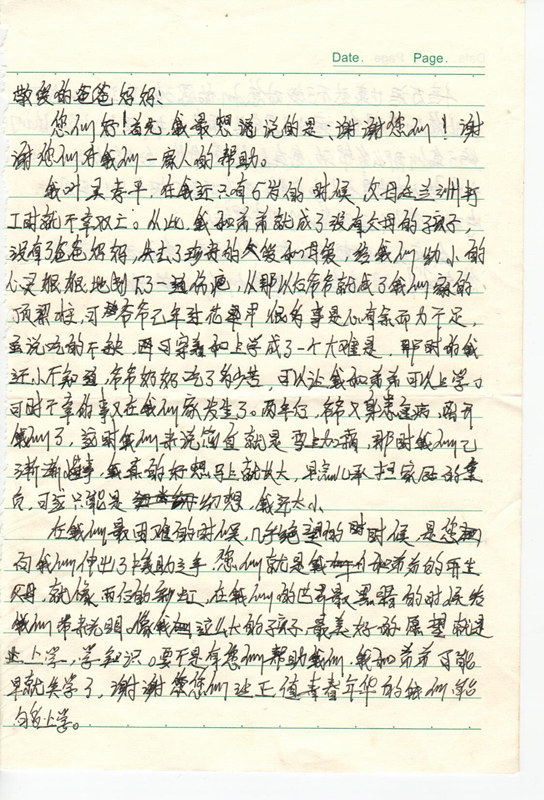 Date. Page.
敬爱的爸爸妈妈:
您们好!首先我最想说的是:谢谢您们!谢
谢您们对我们一家人的帮助。
我叫吴孝平,在我还只有5岁的时候,父母在兰洲打
工时就不幸双亡。从此,我和弟弟就成了没有父母的孩子,
没有了爸爸妈妈,失去了的父爱和母爱,给我们幼小的
心灵狠狠地划下了一道伤疤,从那以后爷爷就成了我们家的
顶梁柱,可爷爷已年过花甲很多事是心有余而力不足,
虽说吃的不缺,因可穿着和上学成了一个大难是,那时的我
还小不知道,爷爷奶奶吃了多少苦,可以让我和弟弟可以上学。
可时不幸的事又在我们家发生了。两年后,爷爷又身患重病,离开
我们了,这对我们来说简直就是雪上加霜,那时我们已
渐渐懂事,我真的好想马上就长大,早点儿承担家庭的重
负,可这只能是幻想,我还太小。
在我们最困难的时候,几乎绝望的时候是您
向我们伸出了援助之手,您们就是我和弟弟的再生
父母,就像雨后的彩虹,在我们的世界最黑暗的时候给
我们带来光明,像我们这么大的孩子,最美好的愿望就是
上学,学知识。要不是有您们帮助我们,我和弟弟可能
早就失学了,谢谢您们让正值青春年华的我们能
上学。